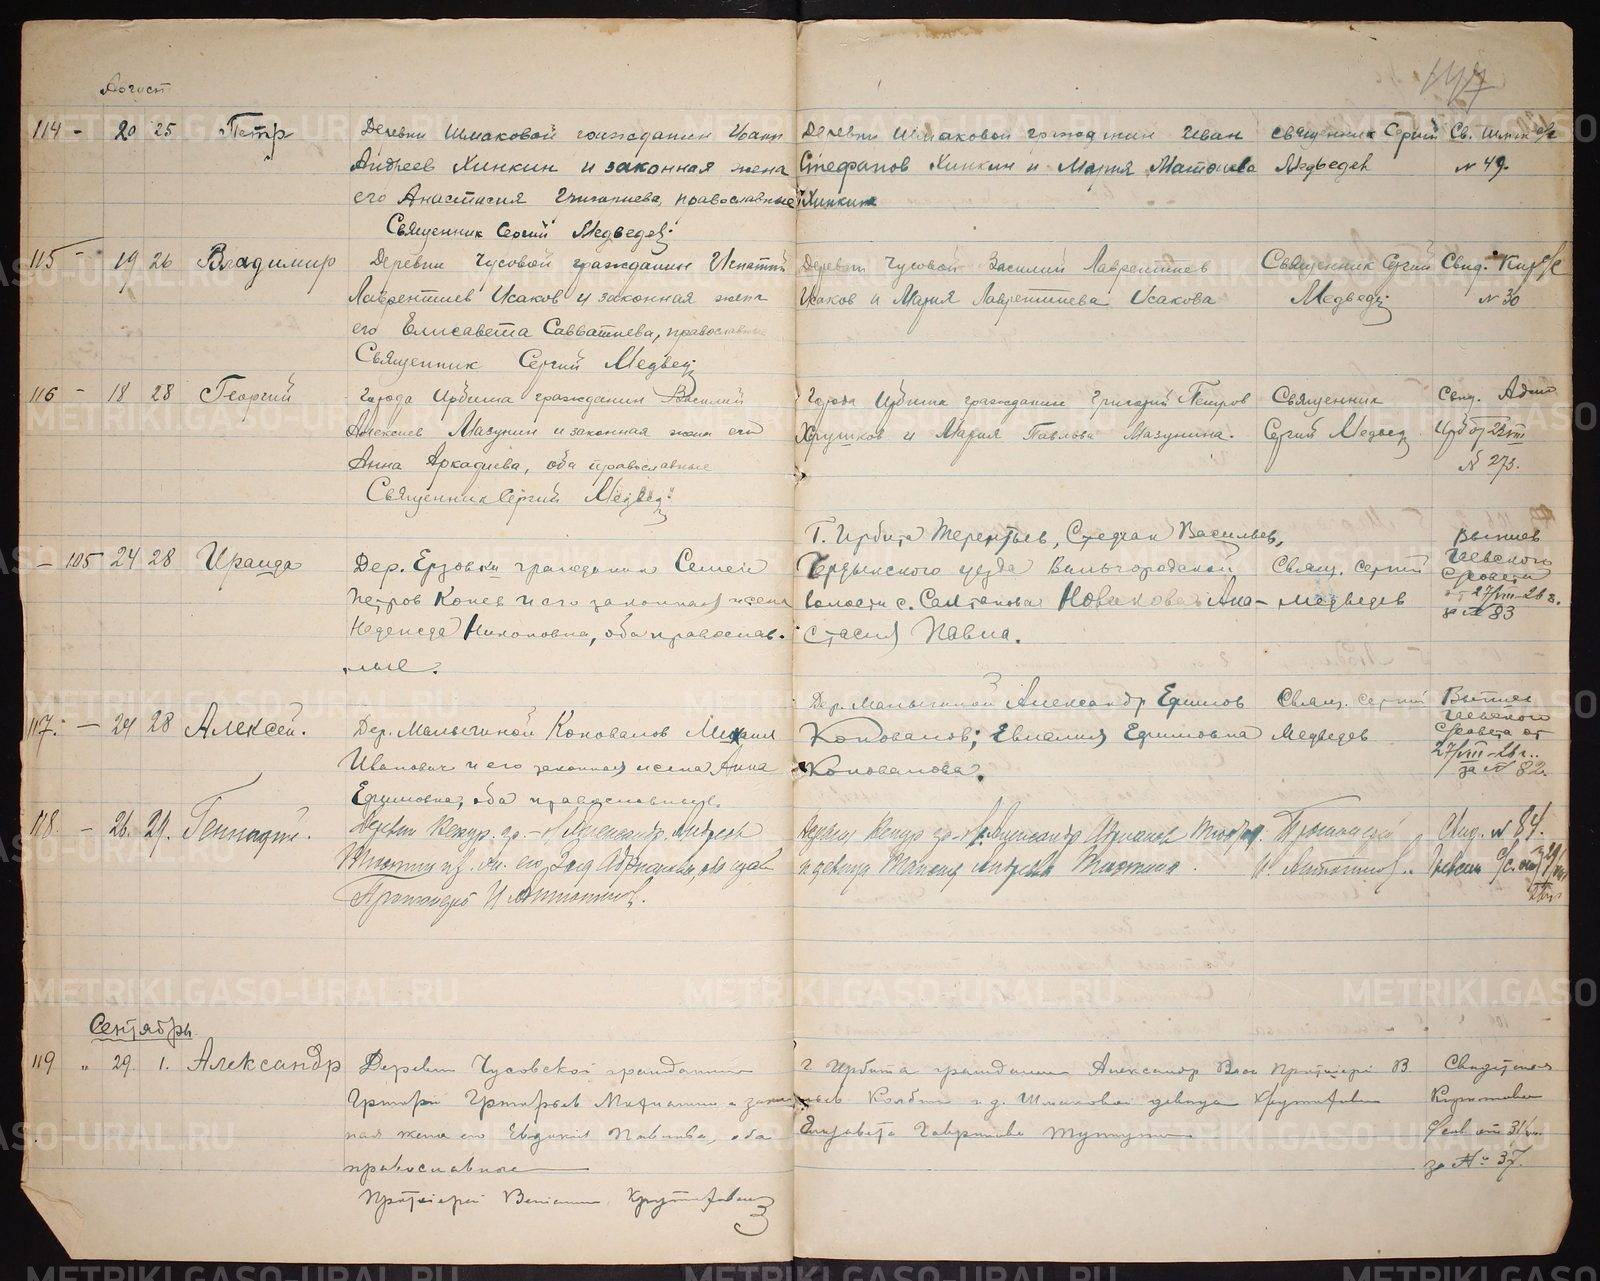 147
Август
114 - 20 25 Петр
Деревни Шмаковой гражданин Иван
Андреев Хинкин и законная жена
его Анастасия Григориева, православные
Священник Сергий Медведев
Деревни Шмаковой гражданин Иван
Стефанов Хинкин и Мария Матвиева
Хинкина
Священник Сергий
Медведев
Св. Шмак с/с
№ 49.
115 - 19 26 Владимир
Деревни Чусовой гражданин Игнатий
Лаврентиев Исаков и законная жена
его Елисавета Савватиева, православные
Священник Сергий Медведев
Деревни Чусовой Василий Лаврентиев
Исаков и Мария Лаврентиева Исакова
Священник Сергий
Медведев
Свид. Кир с/с
№ 30
116 - 18 28 Георгий
Города Ирбита гражданин Василий
Алексиев Мазунин и законная жена его
Анна Аркадиева, оба православные
Священник Сергий Медведев
Города Ирбита гражданин Григорий Петров
Хрушков и Мария Павлова Мазунина.
Священник
Сергий Медведев
Свид. Адм
№ 273.
- 105 24 28 Ираида
Дер. Ерзовки гражданин Семен
Петров Конев и его законная жена
Надежда Никоновна, оба православ-
ные.
Г. Ирбита Терентьев, Степан Васильев,
Чердынского уезда Вильгородской
волости с. Салтаново Новикова Ана-
стасия Павла.
Свящ. Сергий
Медведев
Выпись
Чевского
Совета
от 27/VIII-26 г.
за № 83
117. - 24 28 Алексей.
Дер. Малыгиной Коновалов Михаил
Иванович и его законная жена Анна
Ефимовна, оба православные.
Дер. Малыгиной Александр Ефимов
Коновалов; Евгения Ефимовна
Коновалова.
Свящ. Сергий
Медведев
Выпись
Чевского
Совета от
27/VIII-26 г.
за № 82.
118. - 26. 29. Геннадий.
Деревни Кекур. гр.-н Александр Андреев
Протоиерей
Свид. № 84.
Сентябрь
119 " 29. 1. Александр
Деревни Чусовской гражданин
Григорий Григорьев и закон
ная жена его Евдокия Павлова, оба
православные
Протоиерей
г. Ирбита гражданин Александр
и д. Шмаковой девица
Елизавета Гаврилова
Протоиерей В
Свидетел
за № 37.
METRIKI.GASO-URAL.RU